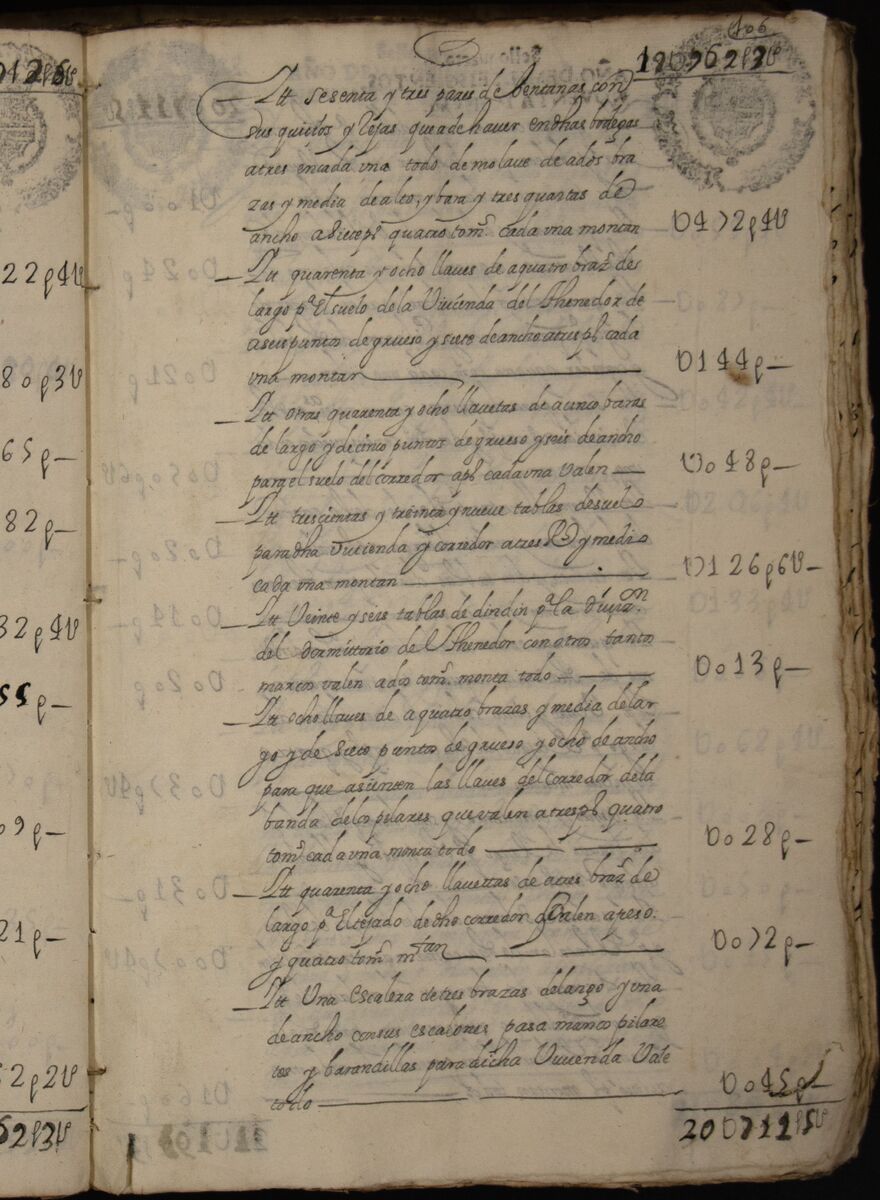 106
19U962p3U
Itt sesenta y tres pares de bentanas con
sus quicios y Rejas que a de haver en dhas bodegas
a tres en cada una todo de molave de a dos bra
zas y media de alto, y bara y tres quartas de
ancho a siete ps quatro toms cada una montan U472p4U
Itt quarenta y ocho llaves de a quatro brazs de
largo pa El suelo de la Vivienda del Thenedor de
a seis puntos de grueso y siete de ancho a tres ps cada
una montan U144p
Itt otras quarenta y ocho llavetas de a cinco baras
de largo y de cinco puntos de grueso y seis de ancho
para el suelo del corredor a ps cada una valen Uo48p
Itt trescientas y treinta y nueve tablas de suelo
para dha vivienda y corredor a tres Rs y medio
cada una montan U126p6U
Itt Veinte y seis tablas de dindin pa la divisn
del dormittorio del Thenedor con otros tantos
marcos valen a dos toms monta todo Uo13p
Itt ocho llaves de a quatro brazas y media de lar
go y de siete puntos de grueso y ocho de ancho
para que asienten las llaves del corredor de la
banda de los pilares que valen a tres ps quatro
toms cada una monta todo Uo28p
Itt quarenta y ocho llavettas de a tres brazs de
largo pa El tejado de dho corredor valen a peso
y quatro toms mtan Uo72p
Itt Una escalera de tres brazas de largo y una
de ancho con sus escalones pasa manos pilare
tes y barandillas para dicha Vivienda Vale
todo Uo45p
20U711p5U